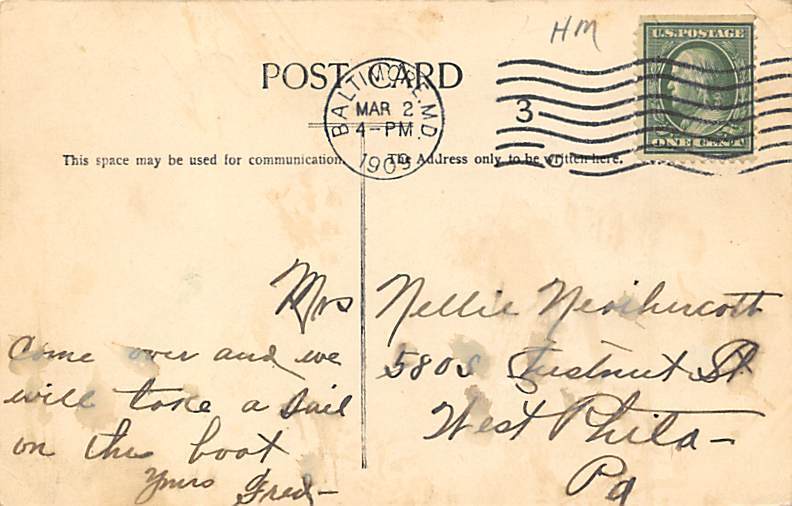 HM
U.S. POSTAGE
POST CARD
BALTIMORE, MD.
MAR 2
4-PM
1909
3
ONE CENT
This space may be used for communication.
The Address only to be written here.
Mrs Nellie
5805 Chestnut St
West Phila-
Pa
Come over and we
will take a sail
on this boat
Yours Fred-